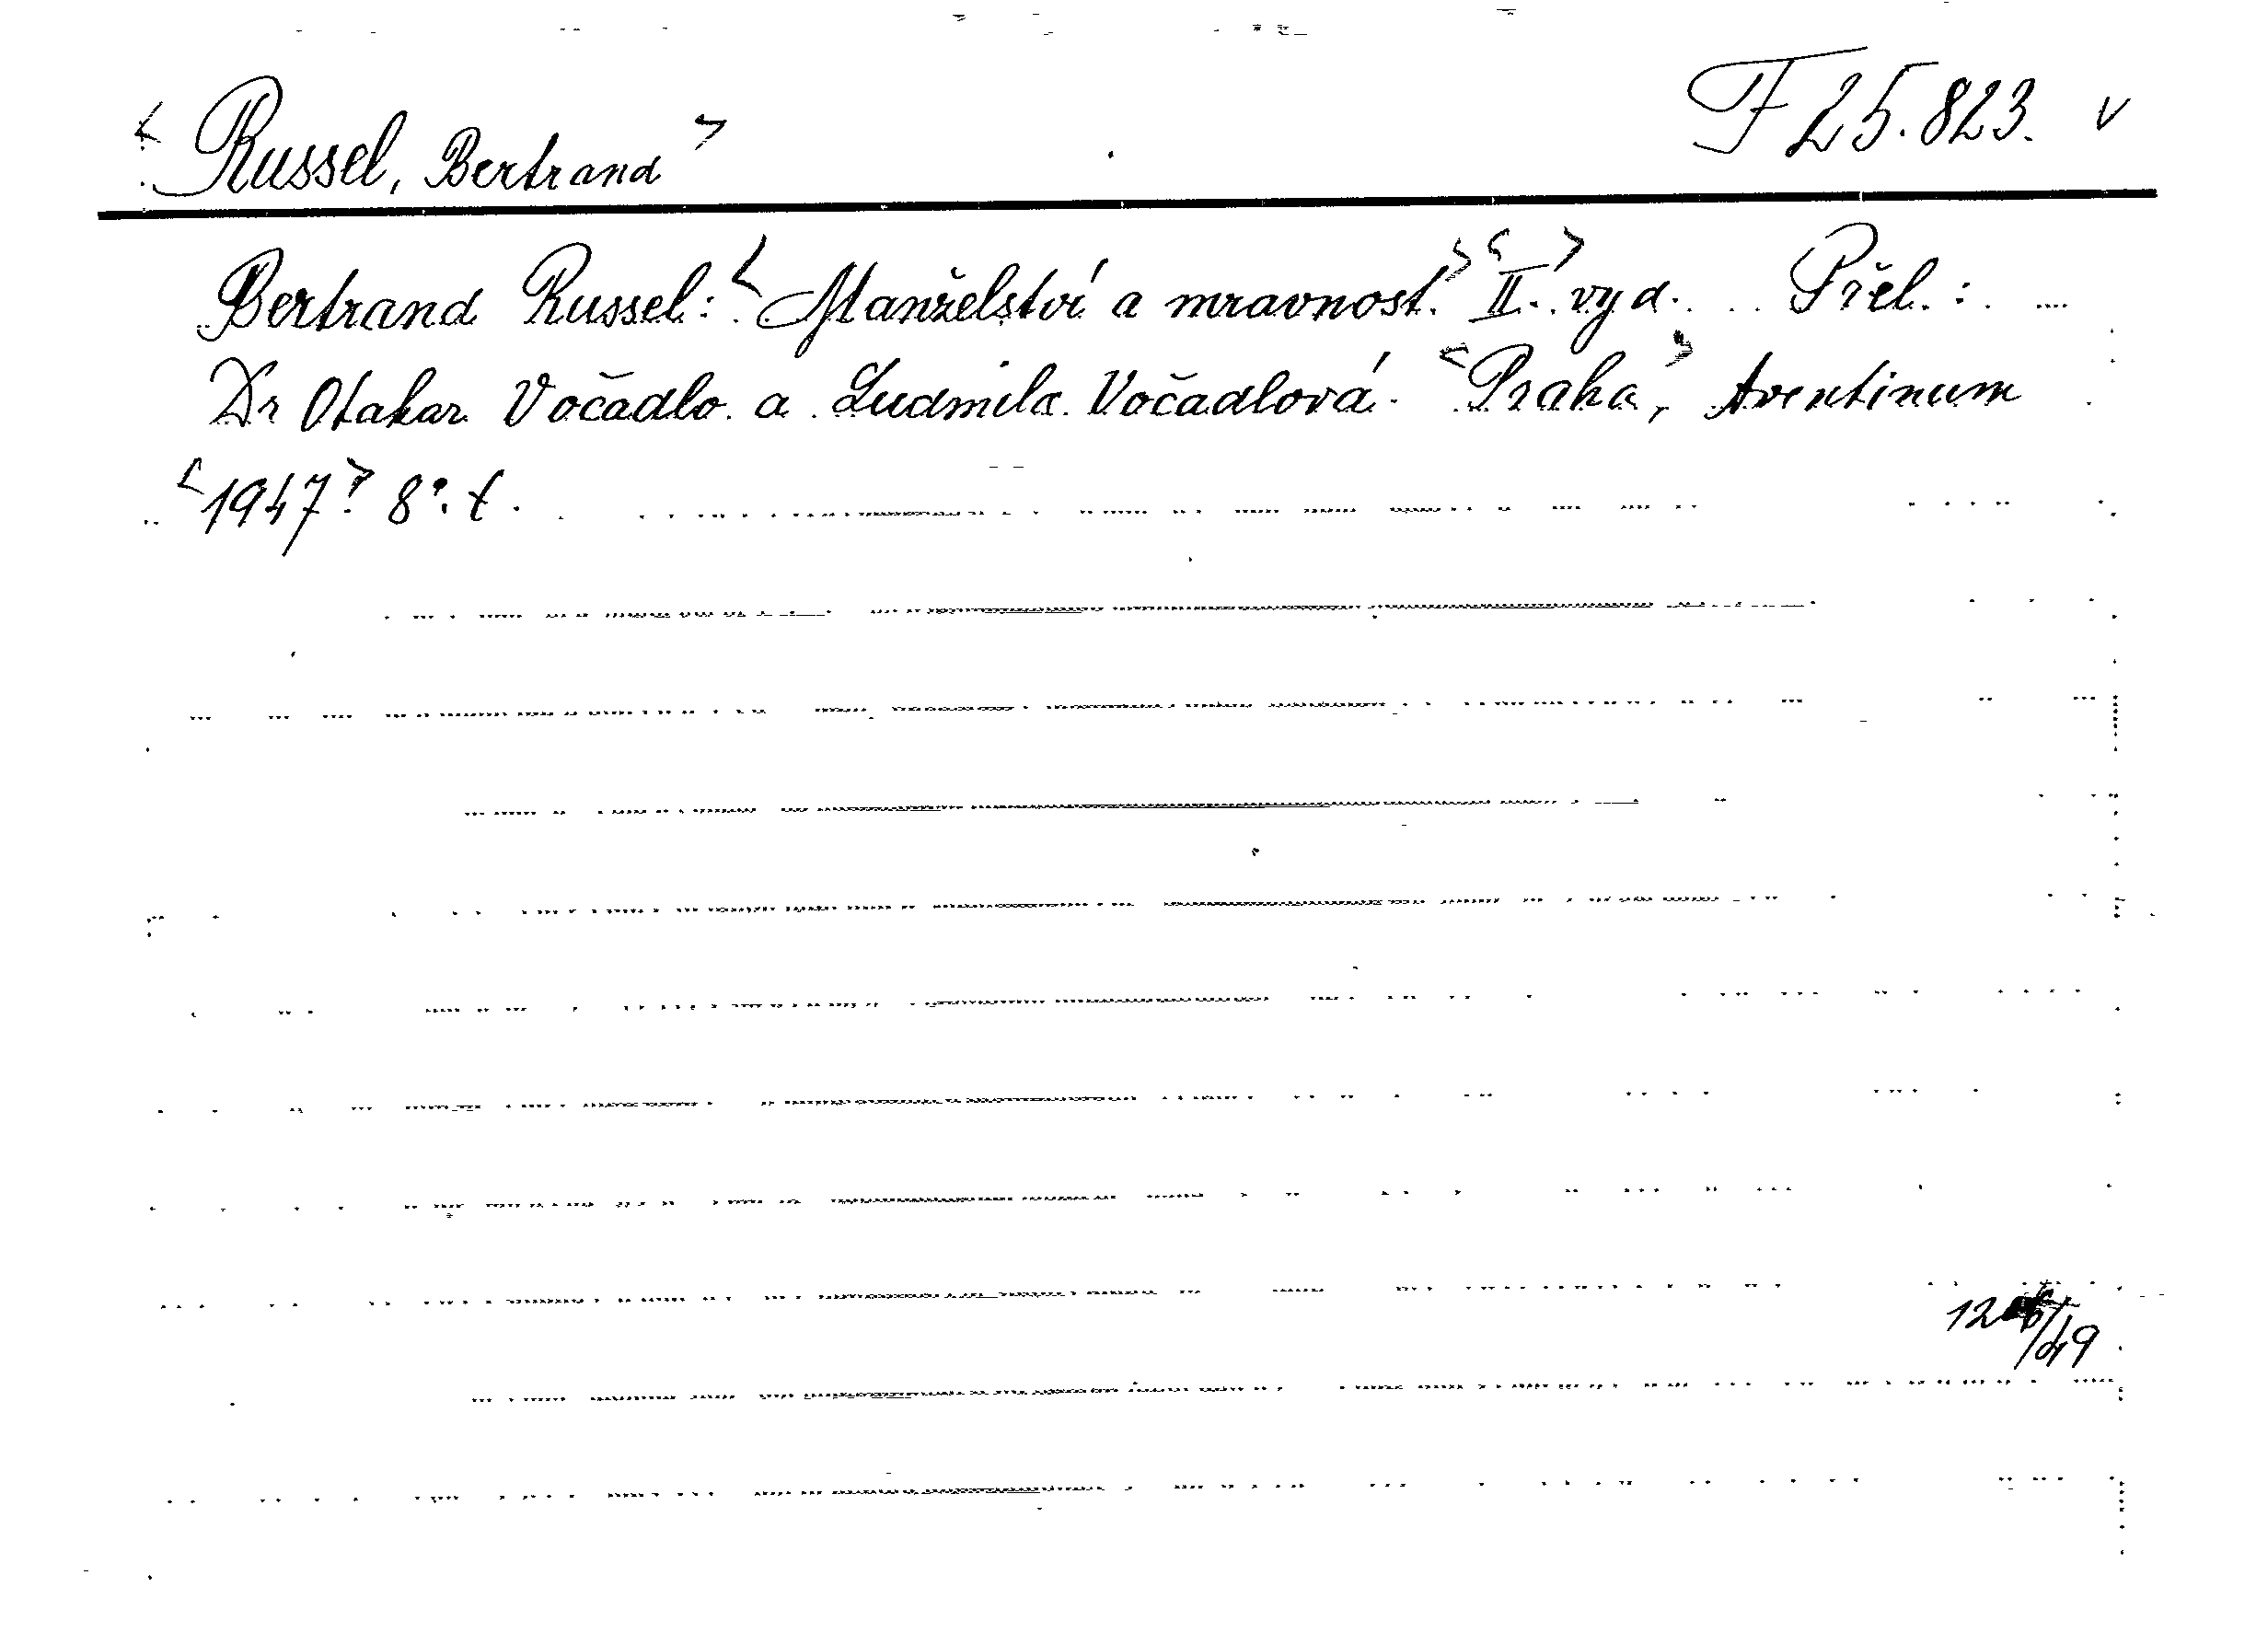 <Russel, Bertrand> F 25.823. v
Bertrand Russel: <Manželství a mravnost.> <II.> vyd. Přel.:
Dr Otakar Vočadlo a Ludmila Vočadlová. <Praha,> Aventinum
<1947> 8°. t.
/49